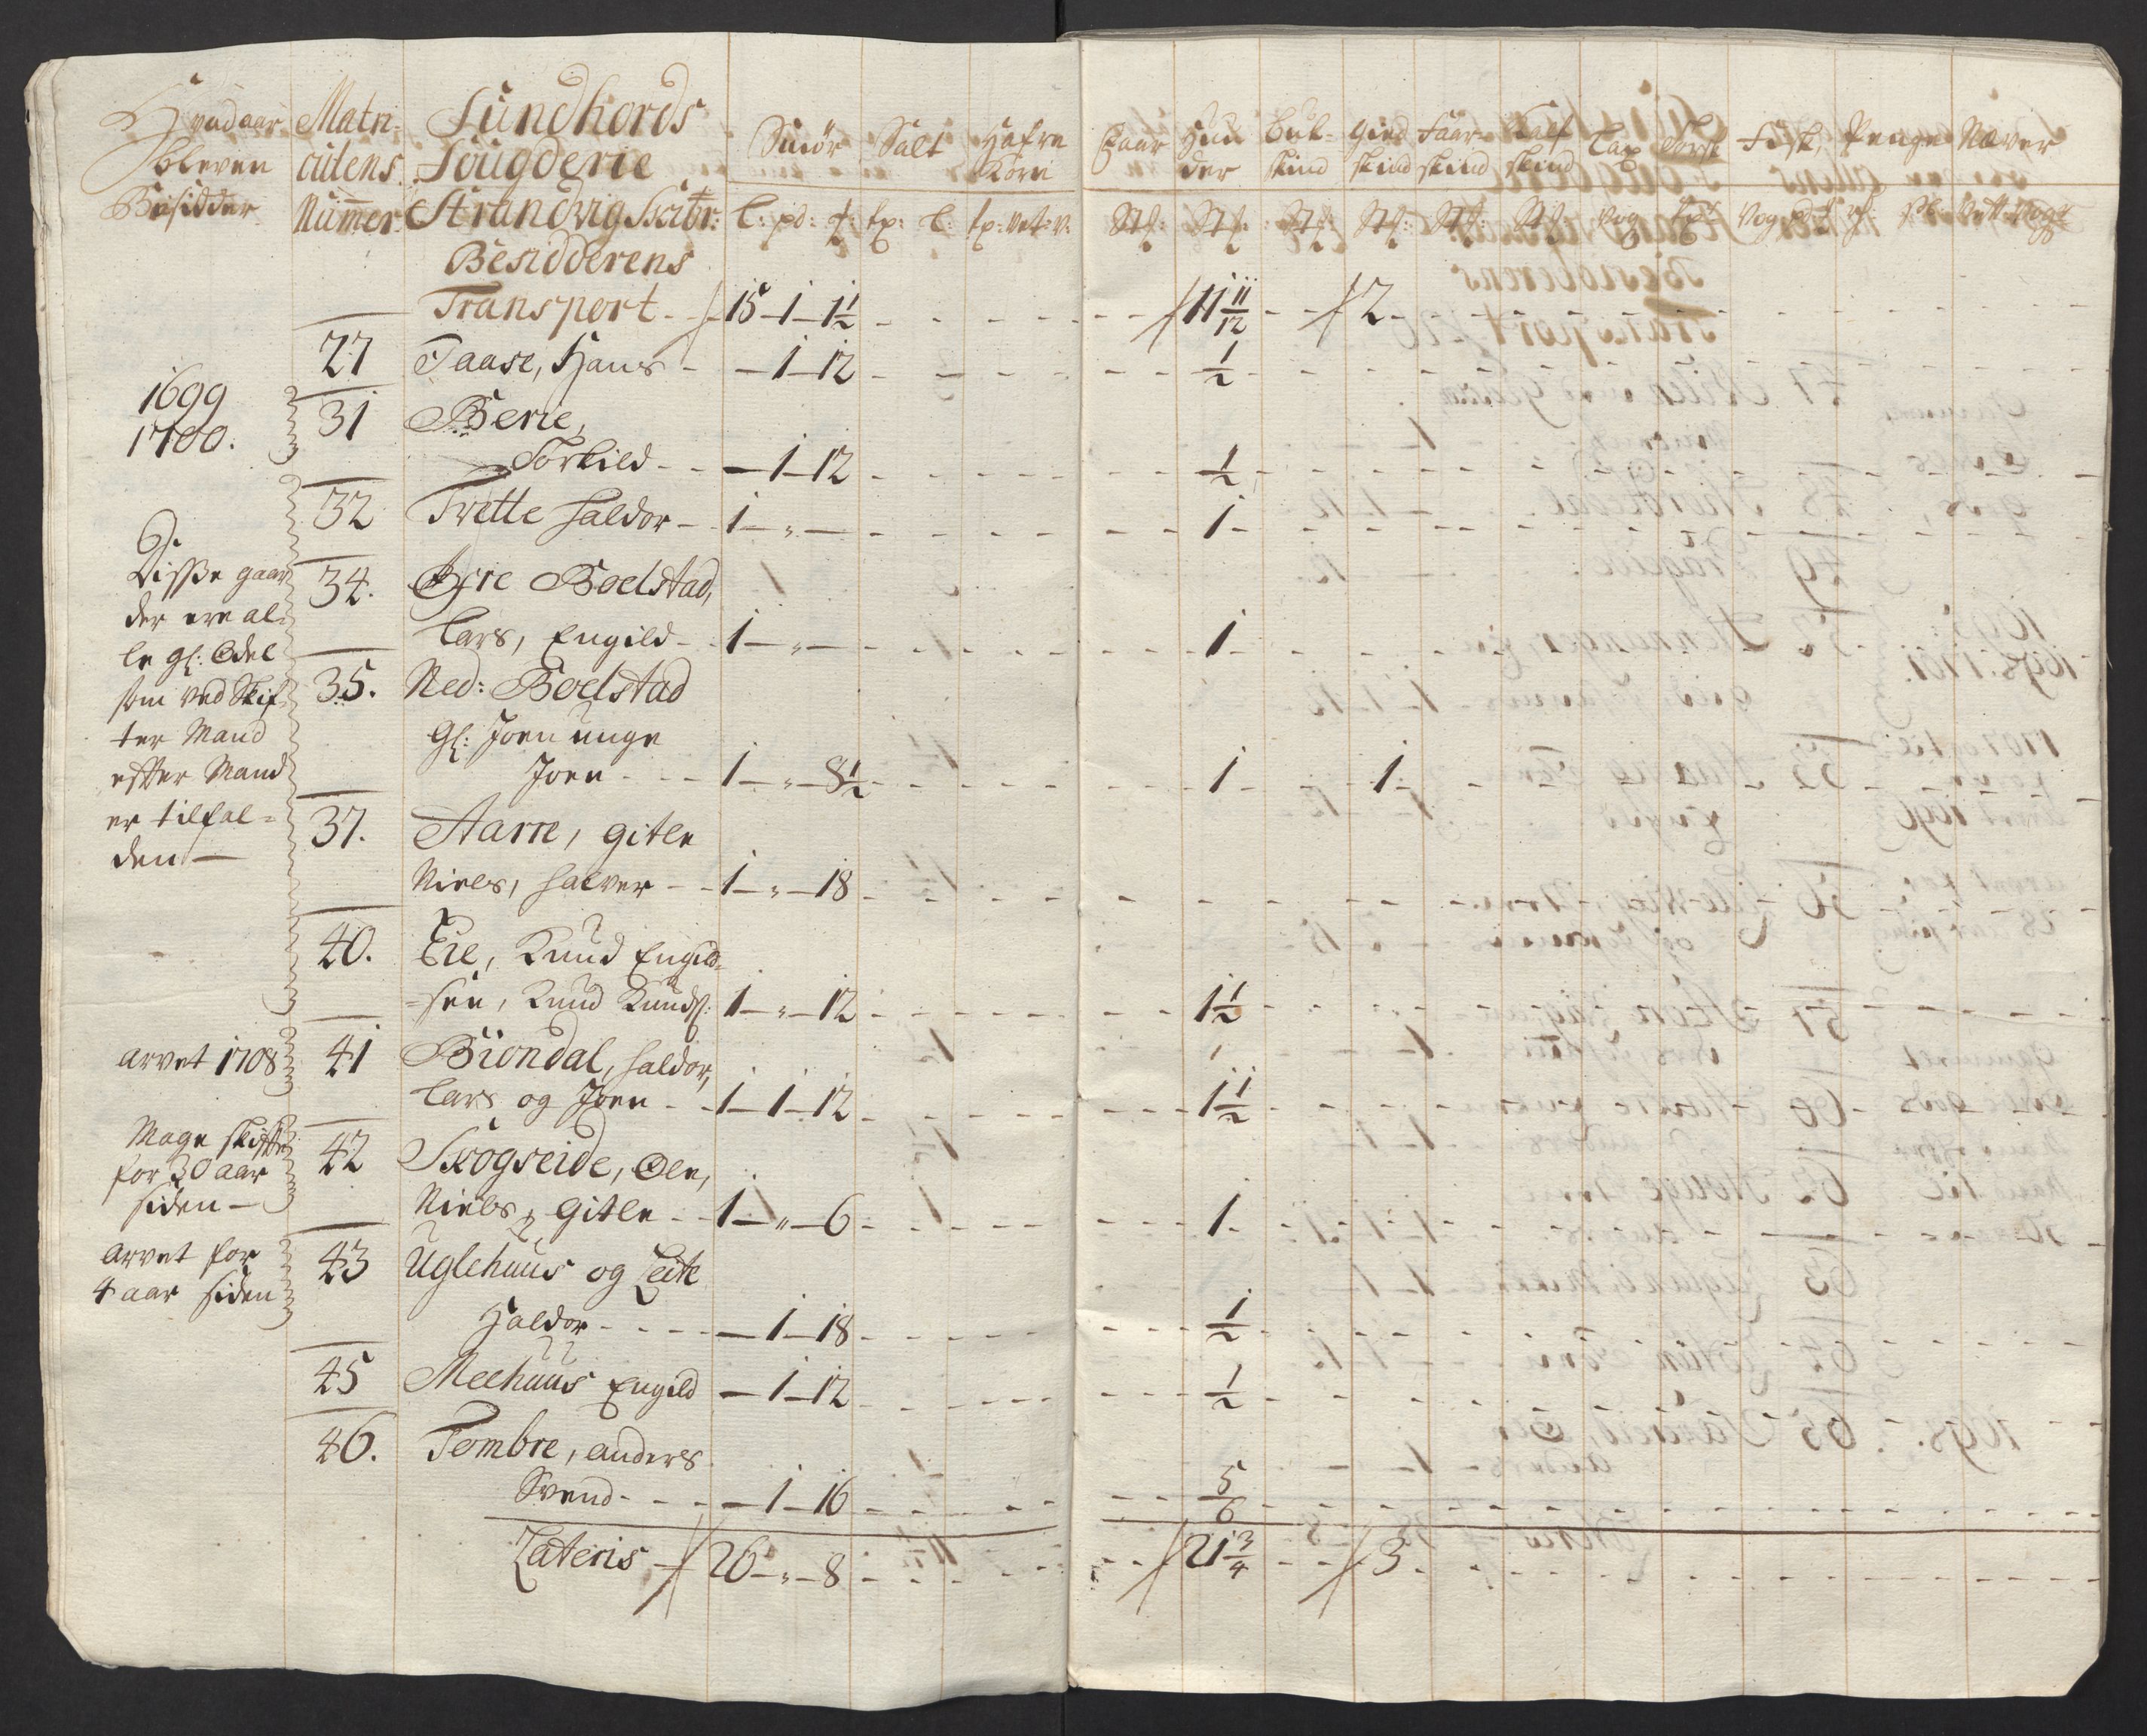 Hvad aar
bleven
Besidder
Matri-
culens
Nummer
Sundhords
Fougderie
Strandvig Skibr:
Besidderens
Smør
Salt
Hafre
Korn
Faar
Huder
Buk-
skind
Gied
skind
Faar
skind
Kalf
skind
Lax
Torsk
Fisk
Penge
Næver
L: pd: [?]: tp: L: tp: vet: v:
Transport 15 - 1 - 1 1/2 - 11 11/12 - 2
27 Taase, Hans - 1 - 12 - 1/2
1699
1700.
31 Berie,
Torkild - 1 - 12 - 1/2
32 Tvette Haldor - 1 - " - 1
Disse gaar
der ere al-
le gl: Odel
som ved Skif-
ter Mand
efter Mand
er tilfal-
den
34. Øfre Boelstad,
Lars, Engild - 1 - " - 1
35. Ned: Boelstad
Gl: Joen unge
Joen - 1 - " - 8 1/2 - 1 - 1
37. Aarre, Gitle
Niels, Halver - 1 - " - 18
40. Eie, Knud Engild-
=sen, Knud Knuds: 1 - " - 12 - 1 1/2
arvet 1708
41 Biondal, Haldor,
Lars og Joen - 1 - 1 - 12 - 1 1/2
Mage skifte
for 30 aar
siden
42 Skogseide, Ole,
Niels, Gitle - 1 - " - 6 - 1
arvet for
4 aar siden
43 Uglehuus og Leite
Haldor - 1 - 18 - 1/2
45 Meehuus Engild - 1 - 12 - 1/2
46. Tombre, anders
Svend - 1 - 16 - 5/6
Lateris 26 - " - 8 - 21 3/4 - 3